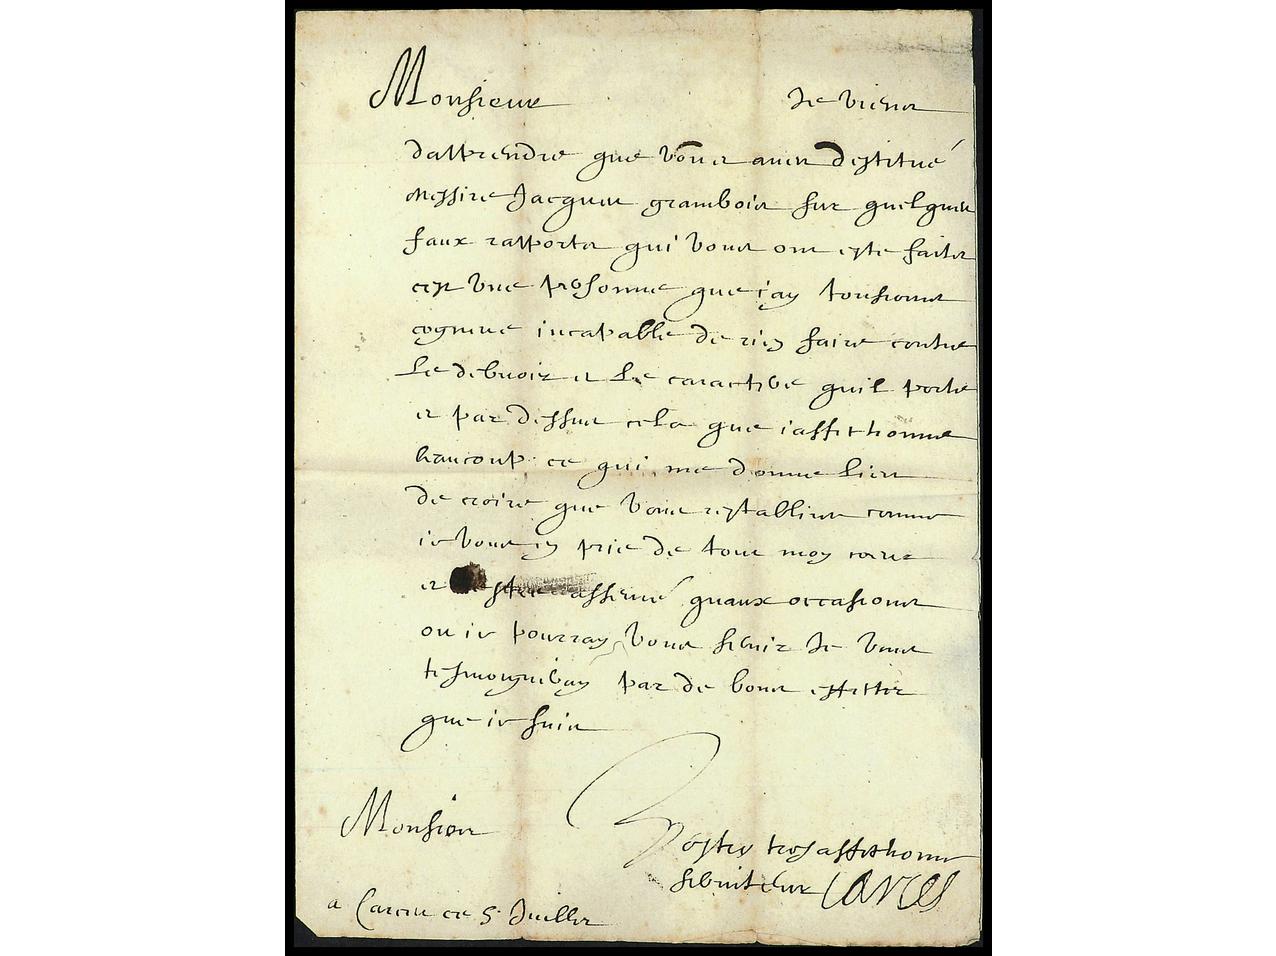 Monsieur Je viens
dapprendre que vous avez destitué
Messire Jacques grambois sur quelques
faux rapports qui vous ont esté faits
cest une personne que iay tousiours
cognue incapable de rien faire contre
Le debvoir et Le caractere quil porte
et par dessus cela que iaffectionne
baucoup ce qui me donne lieu
de croire que vous restablires comme
ie vous en prie de tout mon coeur
et asseuré quaux occasions
ou ie pourray vous servir Je vous
tesmoigneray par de bons effetts
que ie suis
Monsieur
Vostre tres affectionne
serviteur Carces
a Carces ce 5 Juillet